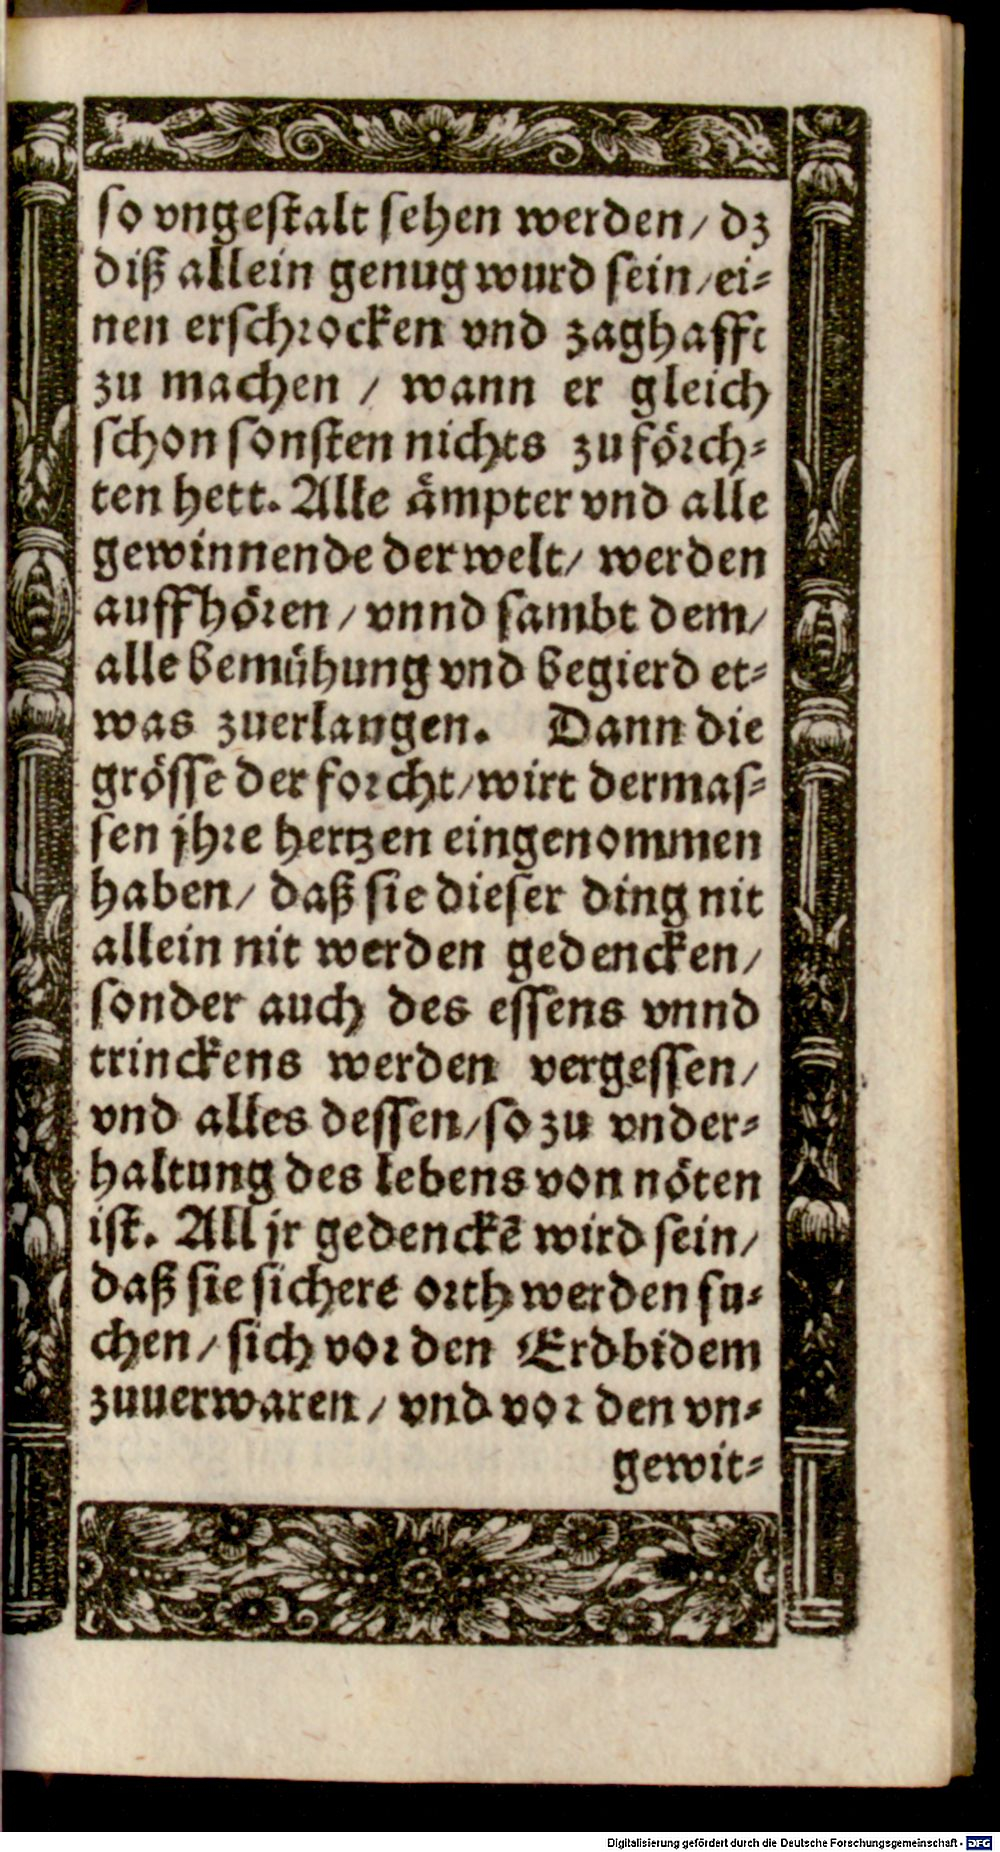 so vngestalt sehen werden/ dz
diß allein genug wurd sein/ ei-
nen erschrocken vnd zaghafft
zu machen / wann er gleich
schon sonsten nichts zu förch-
ten hett. Alle ämpter vnd alle
gewinnende der welt/ werden
auffhören / vnnd sambt dem/
alle bemühung vnd begierd et-
was zuerlangen. Dann die
grösse der forcht/ wirt dermas-
sen jhre hertzen eingenommen
haben/ daß sie dieser ding nit
allein nit werden gedencken/
sonder auch des essens vnnd
trinckens werden vergessen/
vnd alles dessen/ so zu vnder-
haltung des lebens von nöten
ist. All jr gedenckẽ wird sein/
daß sie sichere orth werden su-
chen / sich vor den Erdbidem
zuuerwaren / vnd vor den vn-
gewit-
Digitalisierung gefördert durch die Deutsche Forschungsgemeinschaft - DFG